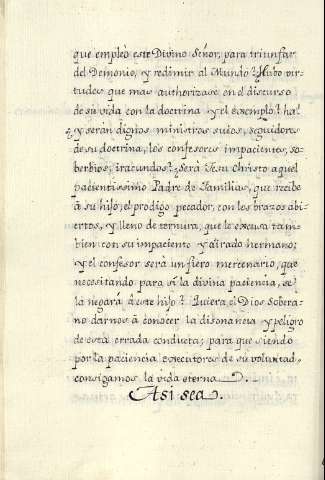 que empleò este Divino Señor, para triunfar
del Demonio, y redimir al Mundo? Hubo vir-
tudes que mas authorizase en el discurso
de su vida con la doctrina y el exemplo? ha!
¿y seràn dignos ministros suios, seguidores
de su doctrina, los confesores impacientes, so-
berbios, iracundos? Serà Jesu Christo aquel
pacientissimo Padre de Familias, que recibe
à su hijo, el prodigo pecador, con los brazos abi-
ertos, y lleno de ternura, que le excusa tam-
bien con su impaciente y airado hermano;
y el confesor serà un fiero mercenario, que
necesitando para sì la divina paciencia, se
la negarà à este hijo? Quiera el Dios Sobera-
no darnos à conocer la disonancia y peligro
de esta errada conducta; para que siendo
por la paciencia executores de su voluntad,
consigamos la vida eterna
Asi sea.